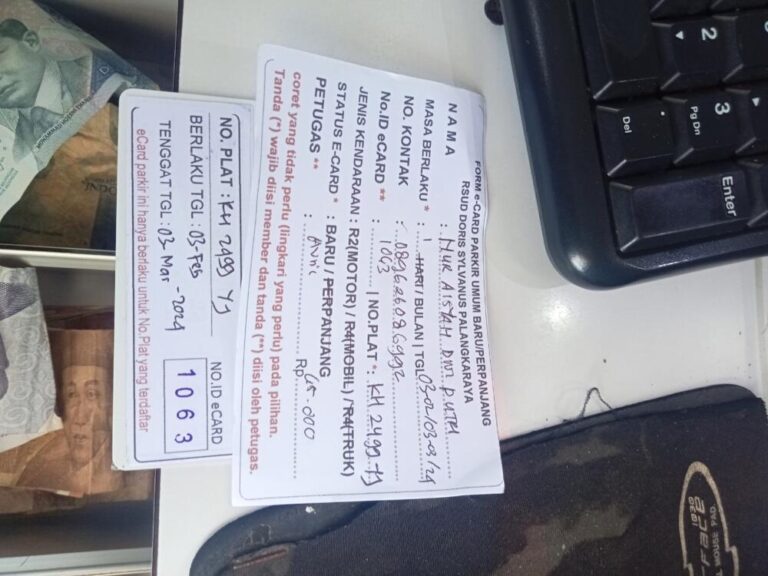 FORM e-CARD PARKIR UMUM BARU/PERPANJANG
RSUD DORIS SYLVANUS PALANGKARAYA
NAMA : Nur AISYAH DWI PUTRI
MASA BERLAKU * : 1 HARI / BULAN | TGL 03-02/03-03/24
NO. KONTAK :
No.ID eCARD ** : 1063 | NO.PLAT *: KH 2499 YJ
JENIS KENDARAAN : R2(MOTOR) / R4(MOBIL) / *R4(TRUK)
STATUS E-CARD * : BARU / PERPANJANG
PETUGAS ** : Rp
coret yang tidak perlu (lingkari yang perlu) pada pilihan.
Tanda (*) wajib diisi member dan tanda (**) diisi oleh petugas.
NO. PLAT : KH 2499 YJ
BERLAKU TGL : 03-Feb
TENGGAT TGL : 03-Mar-2024
NO.ID eCARD
1063
eCard parkir ini hanya berlaku untuk No.Plat yang terdaftar
2
3
Pg Dn
Del
Enter